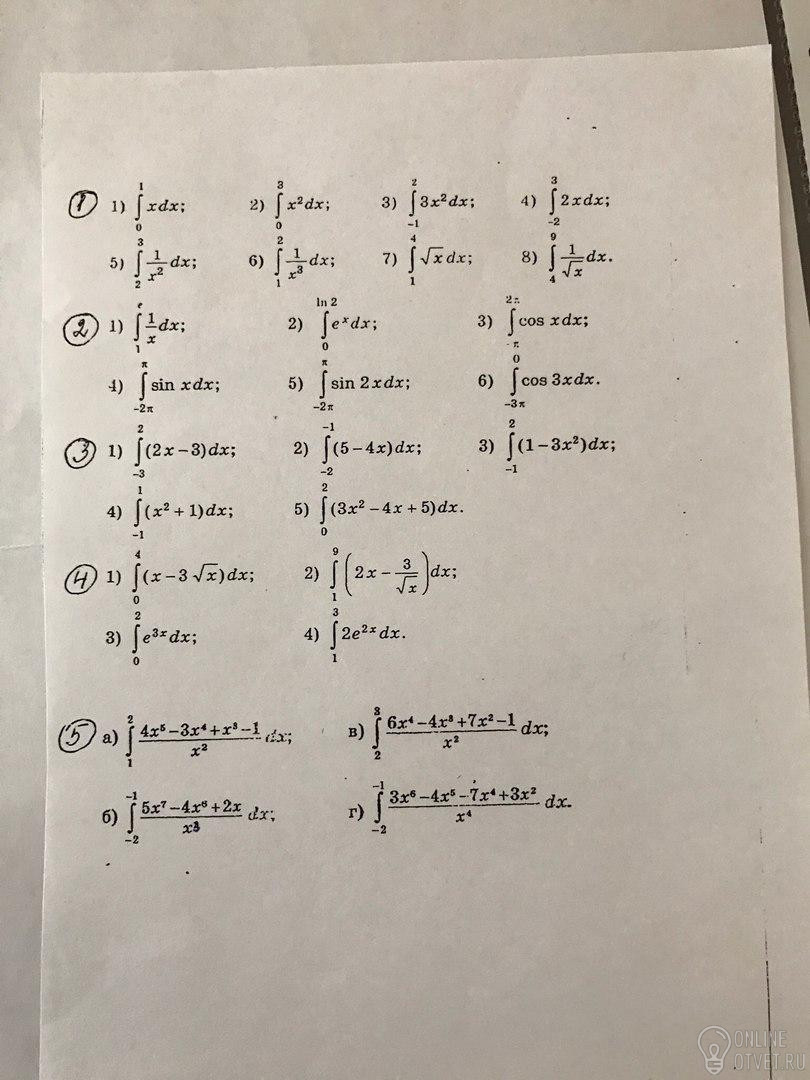 ① 1) ∫₀¹ xdx; 2) ∫₀³ x²dx; 3) ∫₋₁² 3x²dx; 4) ∫₋₂³ 2xdx;
5) ∫₂³ 1/x² dx; 6) ∫₁² 1/x³ dx; 7) ∫₁⁴ √x dx; 8) ∫₄⁹ 1/√x dx.
② 1) ∫₁ᵉ 1/x dx; 2) ∫₀^(ln 2) eˣdx; 3) ∫₋π^(2π) cos xdx;
4) ∫₋₂π^π sin xdx; 5) ∫₋₂π^π sin 2xdx; 6) ∫₋₃π^0 cos 3xdx.
③ 1) ∫₋₃² (2x−3)dx; 2) ∫₋₂⁻¹ (5−4x)dx; 3) ∫₋₁² (1−3x²)dx;
4) ∫₋₁¹ (x²+1)dx; 5) ∫₀² (3x²−4x+5)dx.
④ 1) ∫₀⁴ (x−3√x)dx; 2) ∫₁⁹ (2x−3/√x)dx;
3) ∫₀² e³ˣdx; 4) ∫₁³ 2e²ˣdx.
⑤ а) ∫₁² (4x⁵−3x⁴+x³−1)/x² dx; в) ∫₂³ (6x⁴−4x³+7x²−1)/x² dx;
б) ∫₋₂⁻¹ (5x⁷−4x⁶+2x)/x³ dx; г) ∫₋₂⁻¹ (3x⁶−4x⁵−7x⁴+3x²)/x⁴ dx.
ONLINE
OTVET.RU